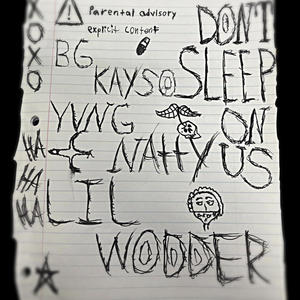 XOXO
Parental advisory
explicit content
DON'T
SLEEP
ON
US
BG
KAYSO
YUNG
NAHTY
LIL
WODDER
HA
HA
HA